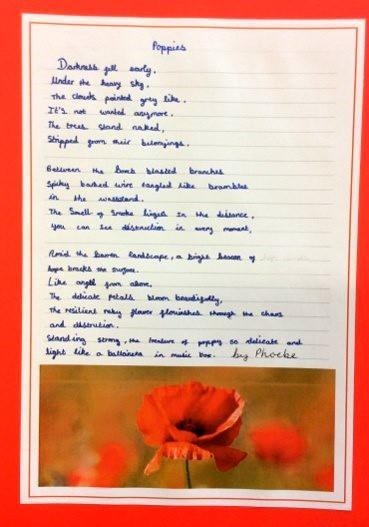 Poppies
Darkness fell early,
Under the heavy sky,
The clouds painted grey like.
It's not wanted anymore.
The trees stand naked,
Stripped from their belongings.
Between the bomb blasted branches
Spiky barbed wire tangled like brambles
in the wasteland.
The smell of smoke lingers in the distance,
You can see destruction in every moment.
Amid the barren landscape, a bright beacon of
hope breaks the surface.
Like angels from above,
The delicate petals bloom beautifully,
The resilient ruby flower flourishes through the chaos
and distrution.
Standing strong, the treasure of poppys so delicate and
light like a ballaineia in music box. by Phoebe